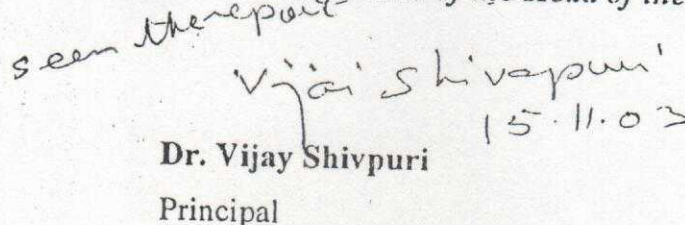 Head of the
seen the report
Vijai Shivapuri
15.11.03
Dr. Vijay Shivpuri
Principal